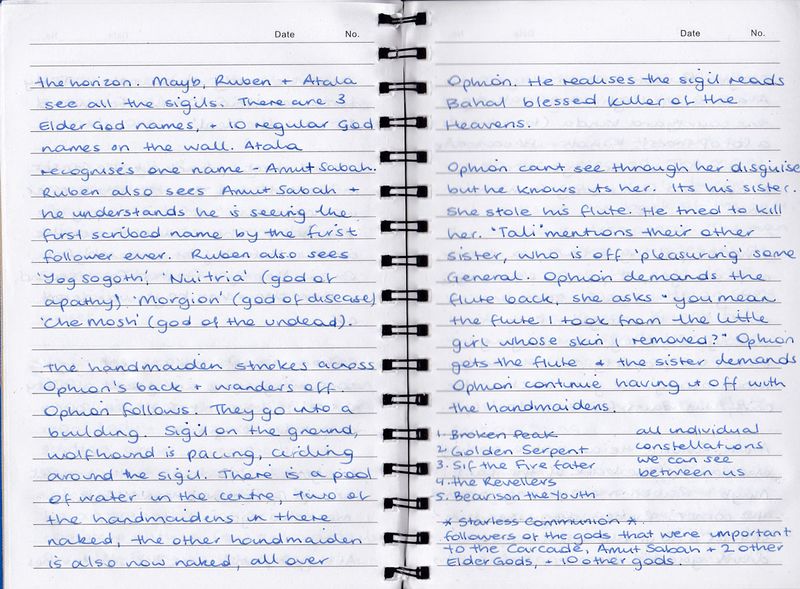 Date No.
the horizon. Mayb, Ruben + Atala
see all the sigils. There are 3
Elder God names, + 10 regular God
names on the wall. Atala
recognises one name - Amut Sabah.
Ruben also sees Amut Sabah +
he understands he is seeing the
first scribed name by the first
follower ever. Ruben also sees
'Yog Sogoth', 'Nuitria' (god of
apathy) 'Morgion' (god of disease)
'Chemosh' (god of the undead).
The handmaiden strokes across
Ophion's back + wanders off.
Ophion follows. They go into a
building. Sigil on the ground,
wolfhound is pacing, circling
around the sigil. There is a pool
of water in the centre, two of
the handmaidens in there
naked, the other handmaiden
is also now naked, all over
Date No.
Ophion. He realises the sigil reads
Bahal blessed killer of the
Heavens.
Ophion cant see through her disguise
but he knows its her. Its his sister.
She stole his flute. He tried to kill
her. "Tali" mentions their other
sister, who is off 'pleasuring' some
General. Ophion demands the
flute back, she asks "you mean
the flute I took from the little
girl whose skin I removed?" Ophion
gets the flute & the sister demands
Ophion continue having it off with
the handmaidens.
1. Broken Peak
2. Golden Serpent
3. Sif the Fire Eater
4. the Revellers
5. Bearison the Youth
all individual
constellations
we can see
between us
* Starless Communion *
followers of the gods that were important
to the Carcade, Amut Sabah + 2 other
Elder Gods, + 10 other gods.